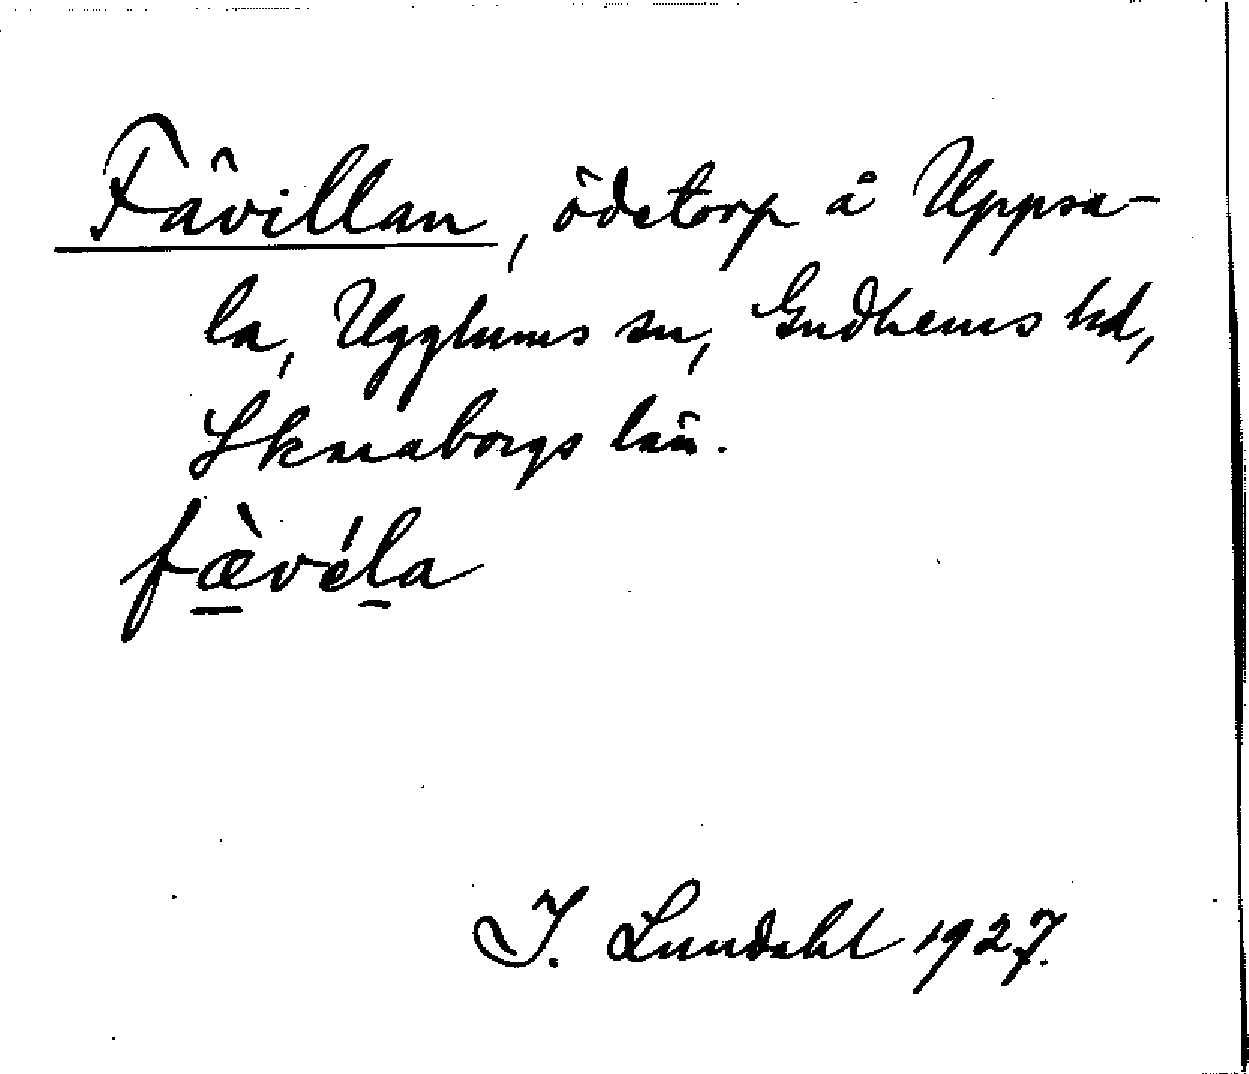 Fävillan, ödetorp å Uppsa-
la, Ugglums sn, Gudhems hd,
Skaraborgs län.
fæ̀véla
I. Lundahl 1927.